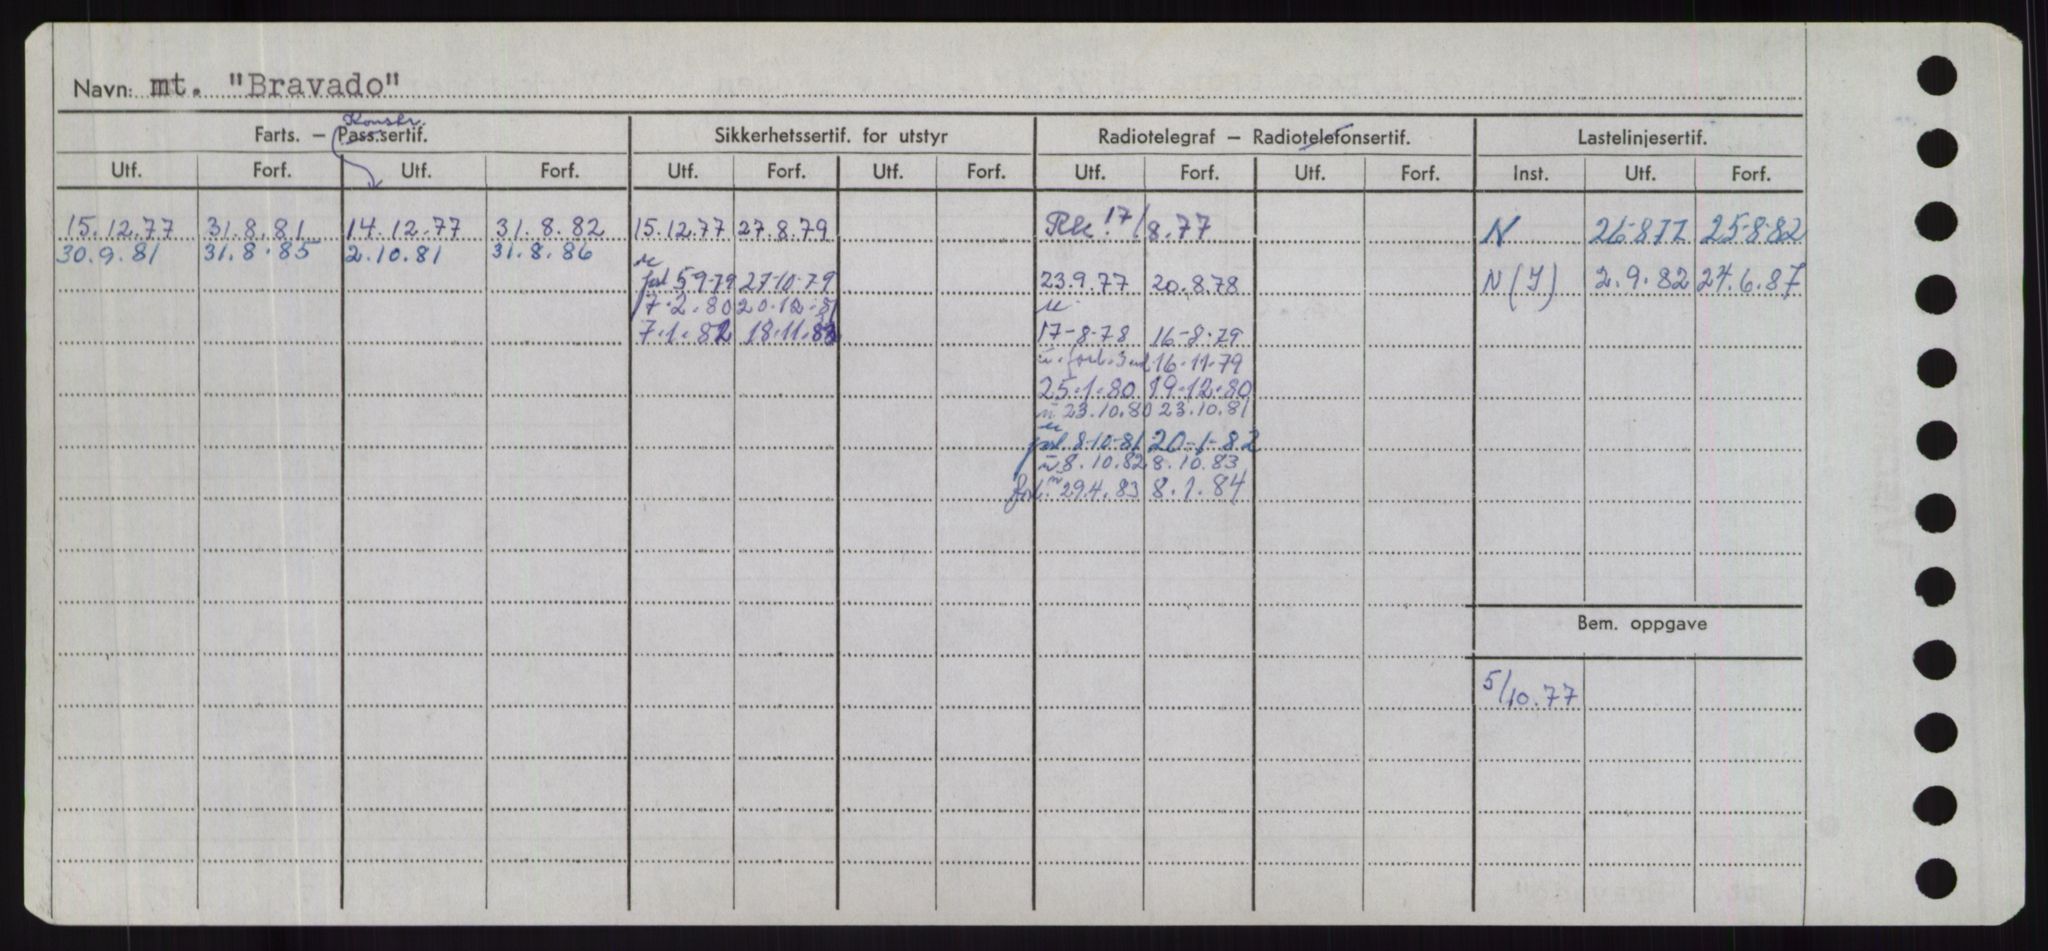 Navn: mt. "Bravado"
Konstr.
Farts. – Pass.sertif. Sikkerhetssertif. for utstyr Radiotelegraf – Radiotelefonsertif. Lastelinjesertif.
Utf. Forf. Utf. Forf. Utf. Forf. Utf. Forf. Utf. Forf. Utf. Forf. Inst. Utf. Forf.
15.12.77 31.8.81 14.12.77 31.8.82 15.12.77 27.8.79 17/8.77 N 26-8-77 25-8-82
30.9.81 31.8.85 2.10.81 31.8.86
forl 5-9-79 27-10-79 23.9.77 20.8.78 N(I) 2.9.82 24.6.87
7.2.80 20.12.81
7.1.82 18.11.83 17-8-78 16-8-79
u. forl. 3 md 16-11-79
25.1.80 19-12-80
u 23.10.80 23.10.81
u
forl. 8-10-81 20-1-82
u 8.10.82 8.10.83
forl. 29.4.83 8.1.84
Bem. oppgave
5/10.77